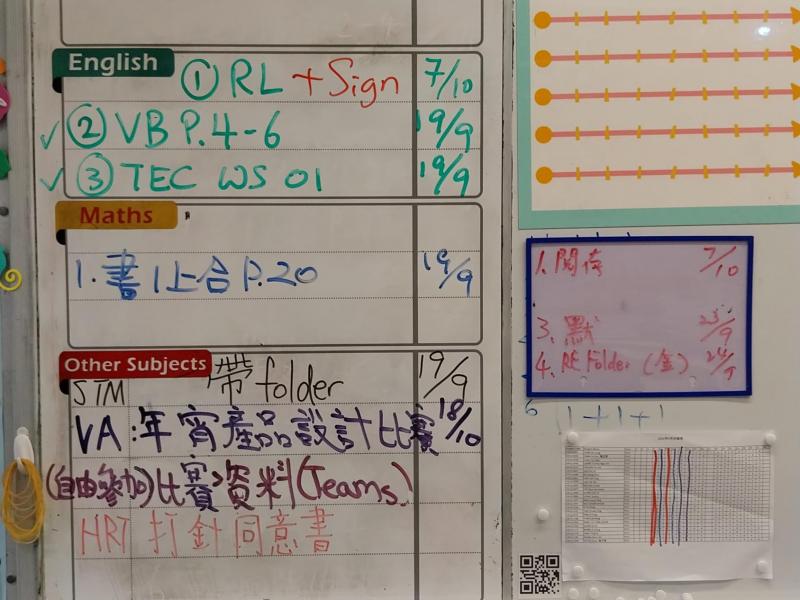 English
① RL + Sign 7/10
✓ ② VB P.4-6 19/9
✓ ③ TEC WS 01 19/9
Maths
1. 書1上合 P.20 19/9
Other Subjects
STM 帶 folder 19/9
VA : 年宵產品設計比賽 18/10
(自由參加) 比賽資料 (Teams)
HRT 打針同意書
1. 閱 7/10
3. 默 23/9
4. RE Folder (金)
6 1+1+1